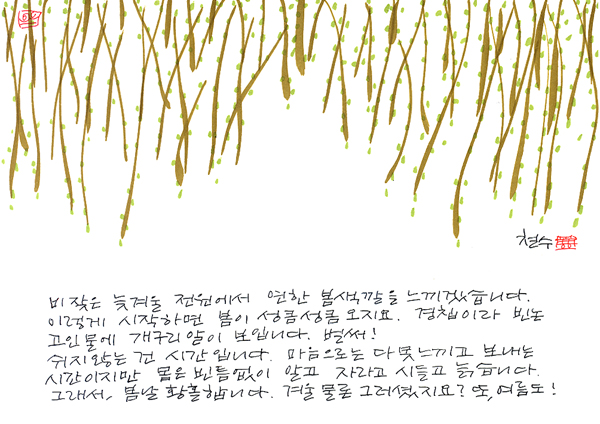 철수
비 잦은 늦겨울 전원에서 연한 봄색깔을 느끼겠습니다.
이렇게 시작하면 봄이 성큼성큼 오지요. 경칩이라 빈논
고인물에 개구리알이 보입니다. 벌써!
쉬지않는 건 시간입니다. 마음으로는 다 못느끼고 보내는
시간이지만 몸은 빈틈없이 알고 자라고 시들고 늙습니다.
그래서, 봄날 황홀합니다. 겨울 물론 그러셨지요? 또, 여름도!